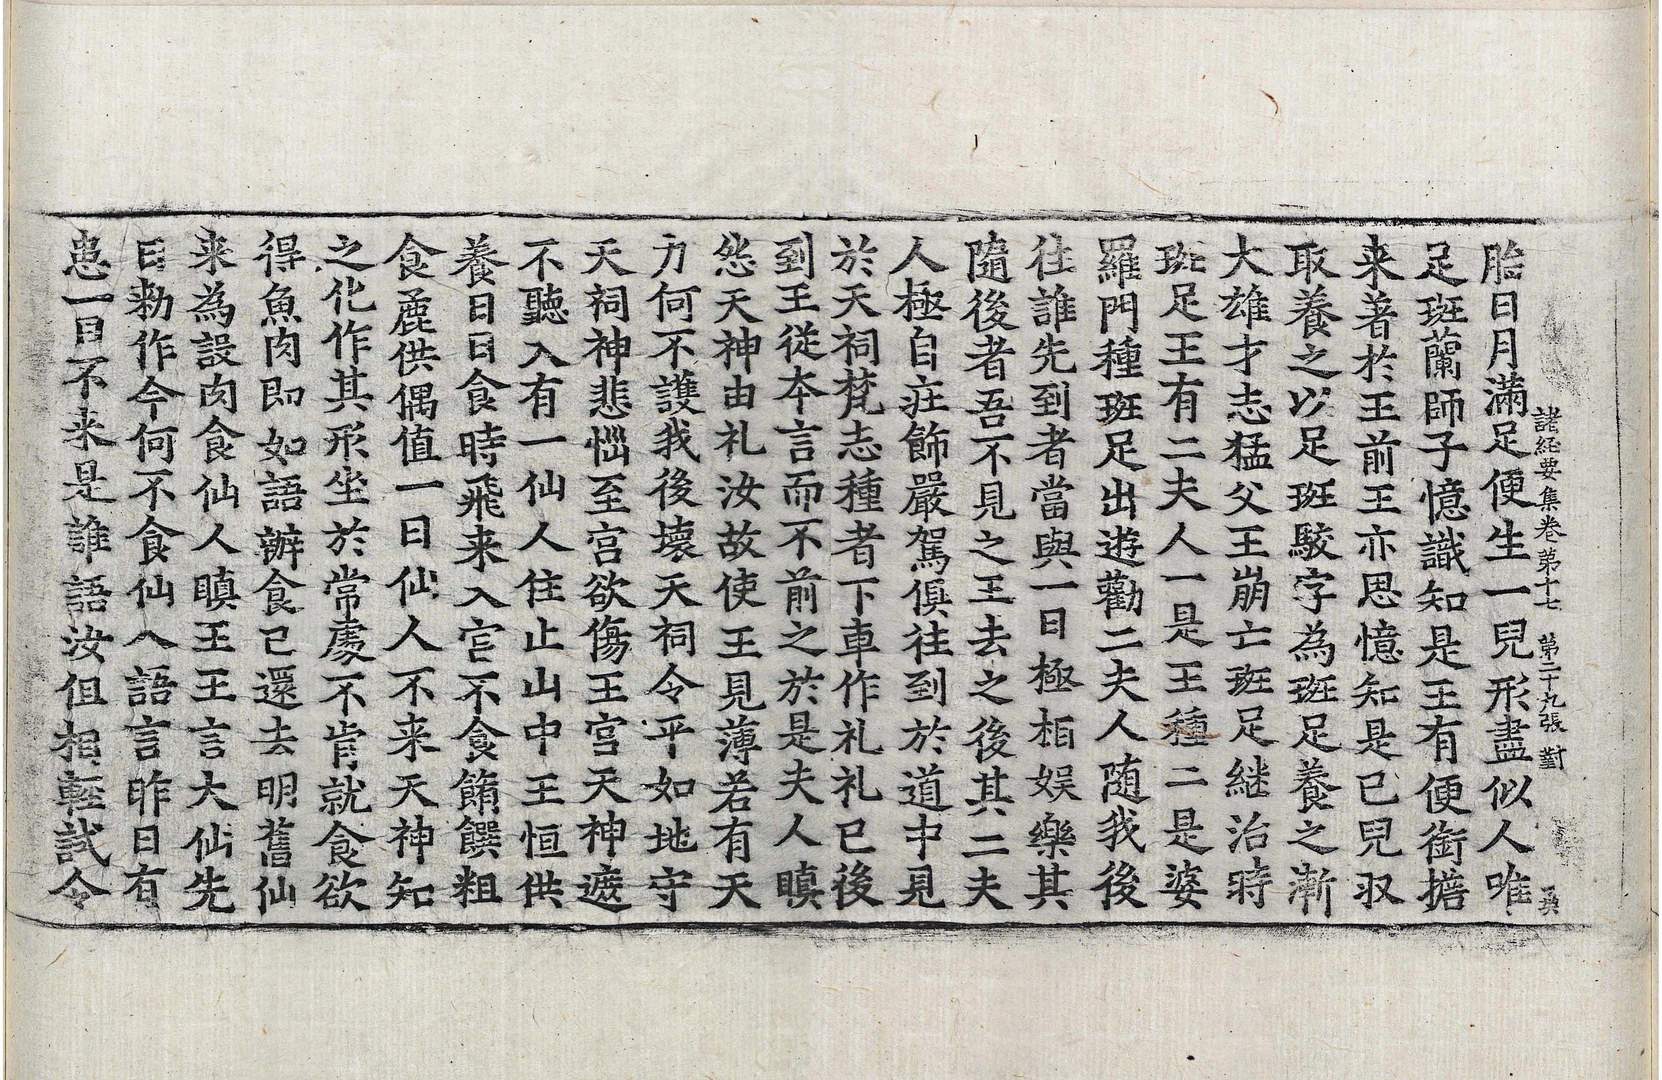 諸經要集卷第十七　第二十九張　對
胎日月滿足便生一兒形盡似人唯
足斑蘭師子憶識知是王有便銜擔
来著於王前王亦思憶知是已兒収
取養之以足斑駮字為斑足養之漸
大雄才志猛父王崩亡斑足継治時
斑足王有二夫人一是王種二是婆
羅門種斑足出遊勸二夫人随我後
往誰先到者當與一日極相娯樂其
隨後者吾不見之王去之後其二夫
人極自庄飾嚴駕俱往到於道中見
於天祠梵志種者下車作礼礼已後
到王從本言而不前之於是夫人瞋
怨天神由礼汝故使王見薄若有天
力何不護我後壞天祠令平如地守
天祠神悲惱至宮欲傷王宮天神遮
不聽入有一仙人住止山中王恒供
養日日食時飛来入宮不食餚饌粗
食麁供偶值一日仙人不来天神知
之化作其形坐於常處不肯就食欲
得魚肉即如語辦食已還去明舊仙
来為設肉食仙人瞋王王言大仙先
日勑作今何不食仙人語言昨日有
患一日不来是誰語汝伹相輕試令